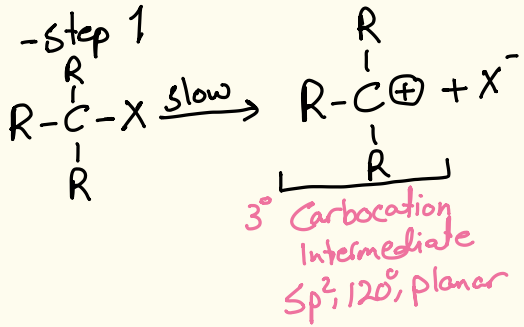 -Step 1
R
R-C-X
R
slow
R
R-C⊕ + X⁻
R
3° Carbocation
Intermediate
Sp², 120°, planar